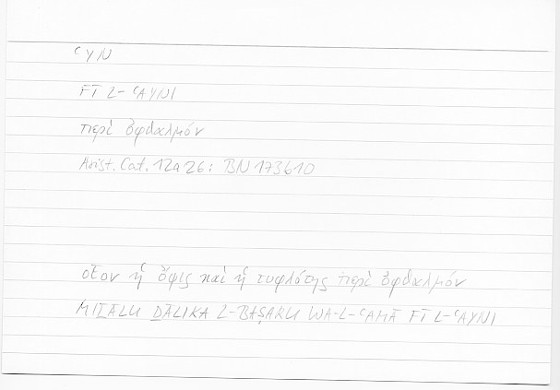 ʿYN
FĪ L-ʿAYNI
περὶ ὀφθαλμόν
Arist. Cat. 12a26: BN 173b10
οἷον ἡ ὄψις καὶ ἡ τυφλότης περὶ ὀφθαλμόν
MIṮĀLU ḎĀLIKA L-BAṢARU WA-L-ʿAMĀ FĪ L-ʿAYNI